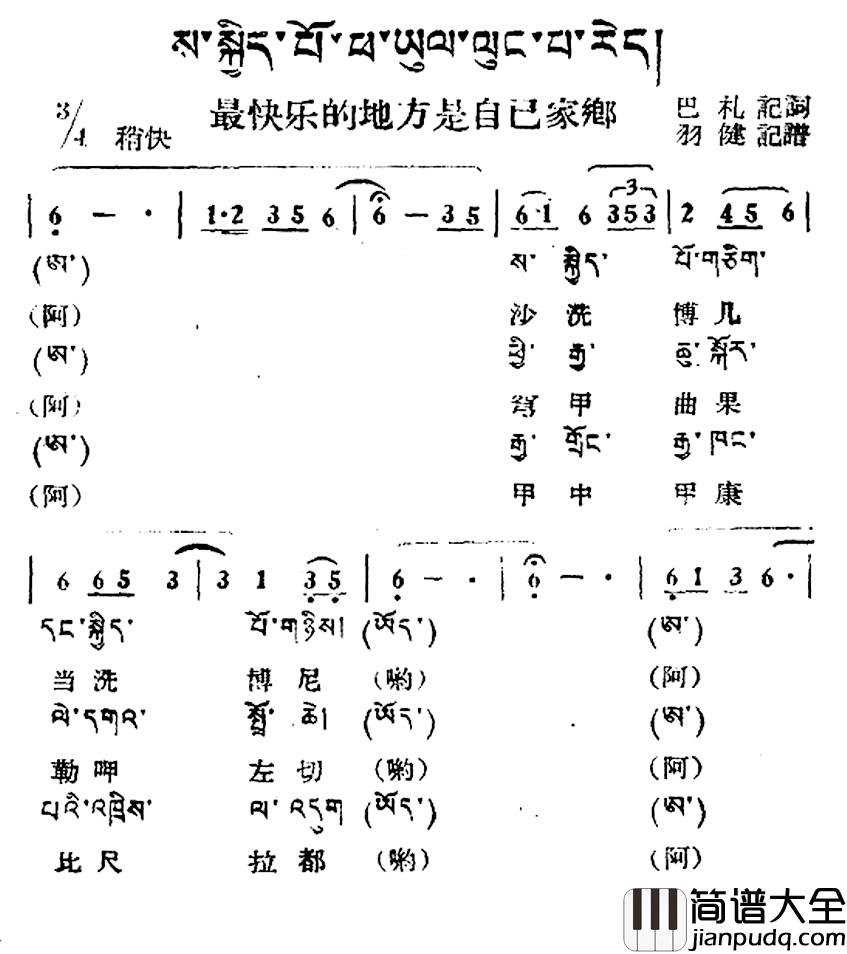 ས་སྐྱིད་པོ་ཕ་ཡུལ་ལུང་པ་རེད།
最快乐的地方是自已家鄉
3/4 稍快
巴札記詞
羽健記譜
| 6 — · | 1·2 3 5 6 | 6 — 3 5 | 6·1 6 3 5 3 | 2 4 5 6 |
(ཨ་) ས་ སྐྱིད་ པོ་གཅིག་
(阿) 沙洗 博几
(ཨ་)
(阿) 穹甲 曲果
(ཨ་) རྒྱ་ གྲོང་ རྒྱ་ ཁང་
(阿) 甲中 甲康
| 6 6 5 3 | 3 1 3 5 | 6 — · | 6 — · | 6 1 3 6 · |
དང་སྐྱིད་ པོ་གཉིས། (ཨོད་) (ཨ་)
当洗 博尼 (喲) (阿)
(ཨོད་) (ཨ་)
勒呷 左切 (喲) (阿)
པའི་འཁྲིས་ ལ་ འདུག (ཨོད་) (ཨ་)
比尺 拉都 (喲) (阿)
简谱大全
jianpudq.com